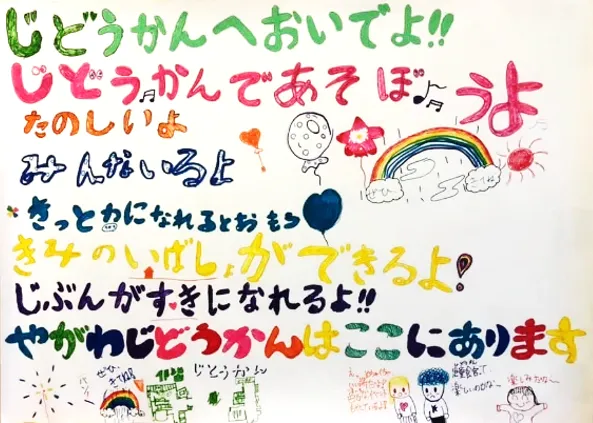 じどうかんへおいでよ!!
じどうかんであそぼうよ
たのしいよ
みんないるよ
ぜひ
きっと力になれるとおもう
きみのいばしょができるよ!
じぶんがすきになれるよ!!
やがわじどうかんはここにあります
ぜひ
じどうかん
楽しみだな〜